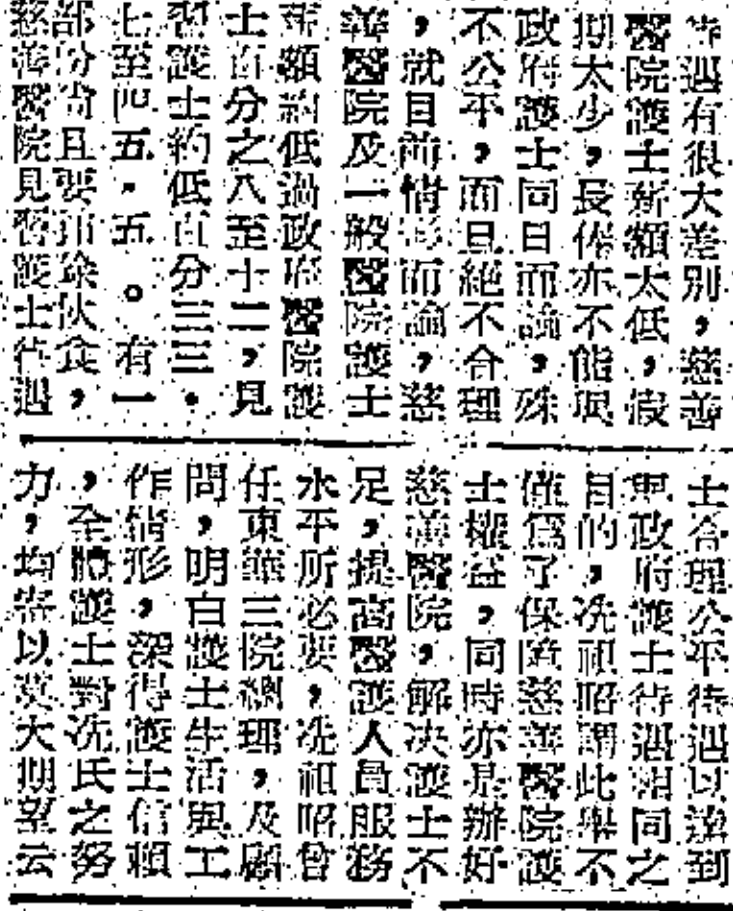 待遇有很大差別，慈善
醫院護士薪額太低，假
期太少，長俸亦不能與
政府護士同日而論，殊
不公平，而且絕不合理
，就目前情形而論，慈
善醫院及一般醫院護士
薪額約低過政府醫院護
士百分之八至十二，見
習護士約低百分三三．
七至四五．五。有一
部份尚且要扣除伙食，
慈善醫院見習護士待遇
士合理公平待遇以達到
與政府護士待遇相同之
目的，冼祖昭謂此舉不
僅爲了保障慈善醫院護
士權益，同時亦是辦好
慈善醫院，解决護士不
足，提高醫護人員服務
水平所必要，冼祖昭曾
任東華三院總理，及顧
問，明白護士生活與工
作情形，深得護士信賴
，全體護士對冼氏之努
力，均寄以莫大期望云